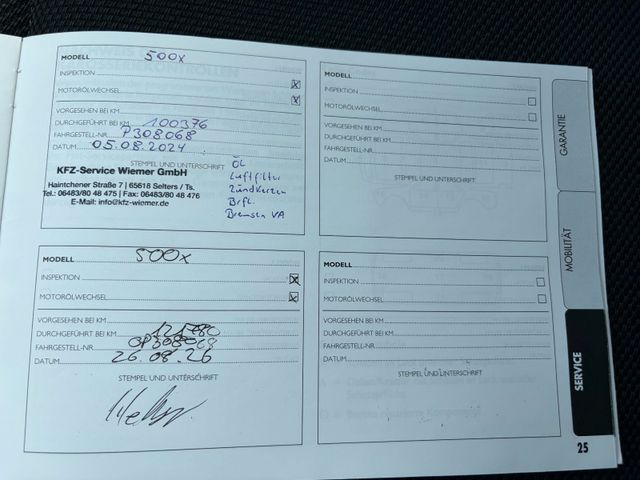 MODELL 500x
INSPEKTION
MOTORÖLWECHSEL
VORGESEHEN BEI KM
DURCHGEFÜHRT BEI KM 100376
FAHRGESTELL-NR. P308068
DATUM 05.08.2024
STEMPEL UND UNTERSCHRIFT
KFZ-Service Wiemer GmbH
Haintchener Straße 7 | 65618 Selters / Ts.
Tel.: 06483/80 48 475 | Fax: 06483/80 48 476
E-Mail: info@kfz-wiemer.de
ÖL
Luftfilter
Zündkerzen
Brfl.
Bremsen VA
MODELL
INSPEKTION
MOTORÖLWECHSEL
VORGESEHEN BEI KM
DURCHGEFÜHRT BEI KM
FAHRGESTELL-NR.
DATUM
STEMPEL UND UNTERSCHRIFT
MODELL 500x
INSPEKTION
MOTORÖLWECHSEL
VORGESEHEN BEI KM
DURCHGEFÜHRT BEI KM
FAHRGESTELL-NR.
DATUM 26.08.26
STEMPEL UND UNTERSCHRIFT
MODELL
INSPEKTION
MOTORÖLWECHSEL
VORGESEHEN BEI KM
DURCHGEFÜHRT BEI KM
FAHRGESTELL-NR.
DATUM
STEMPEL UND UNTERSCHRIFT
GARANTIE
MOBILITÄT
SERVICE
25